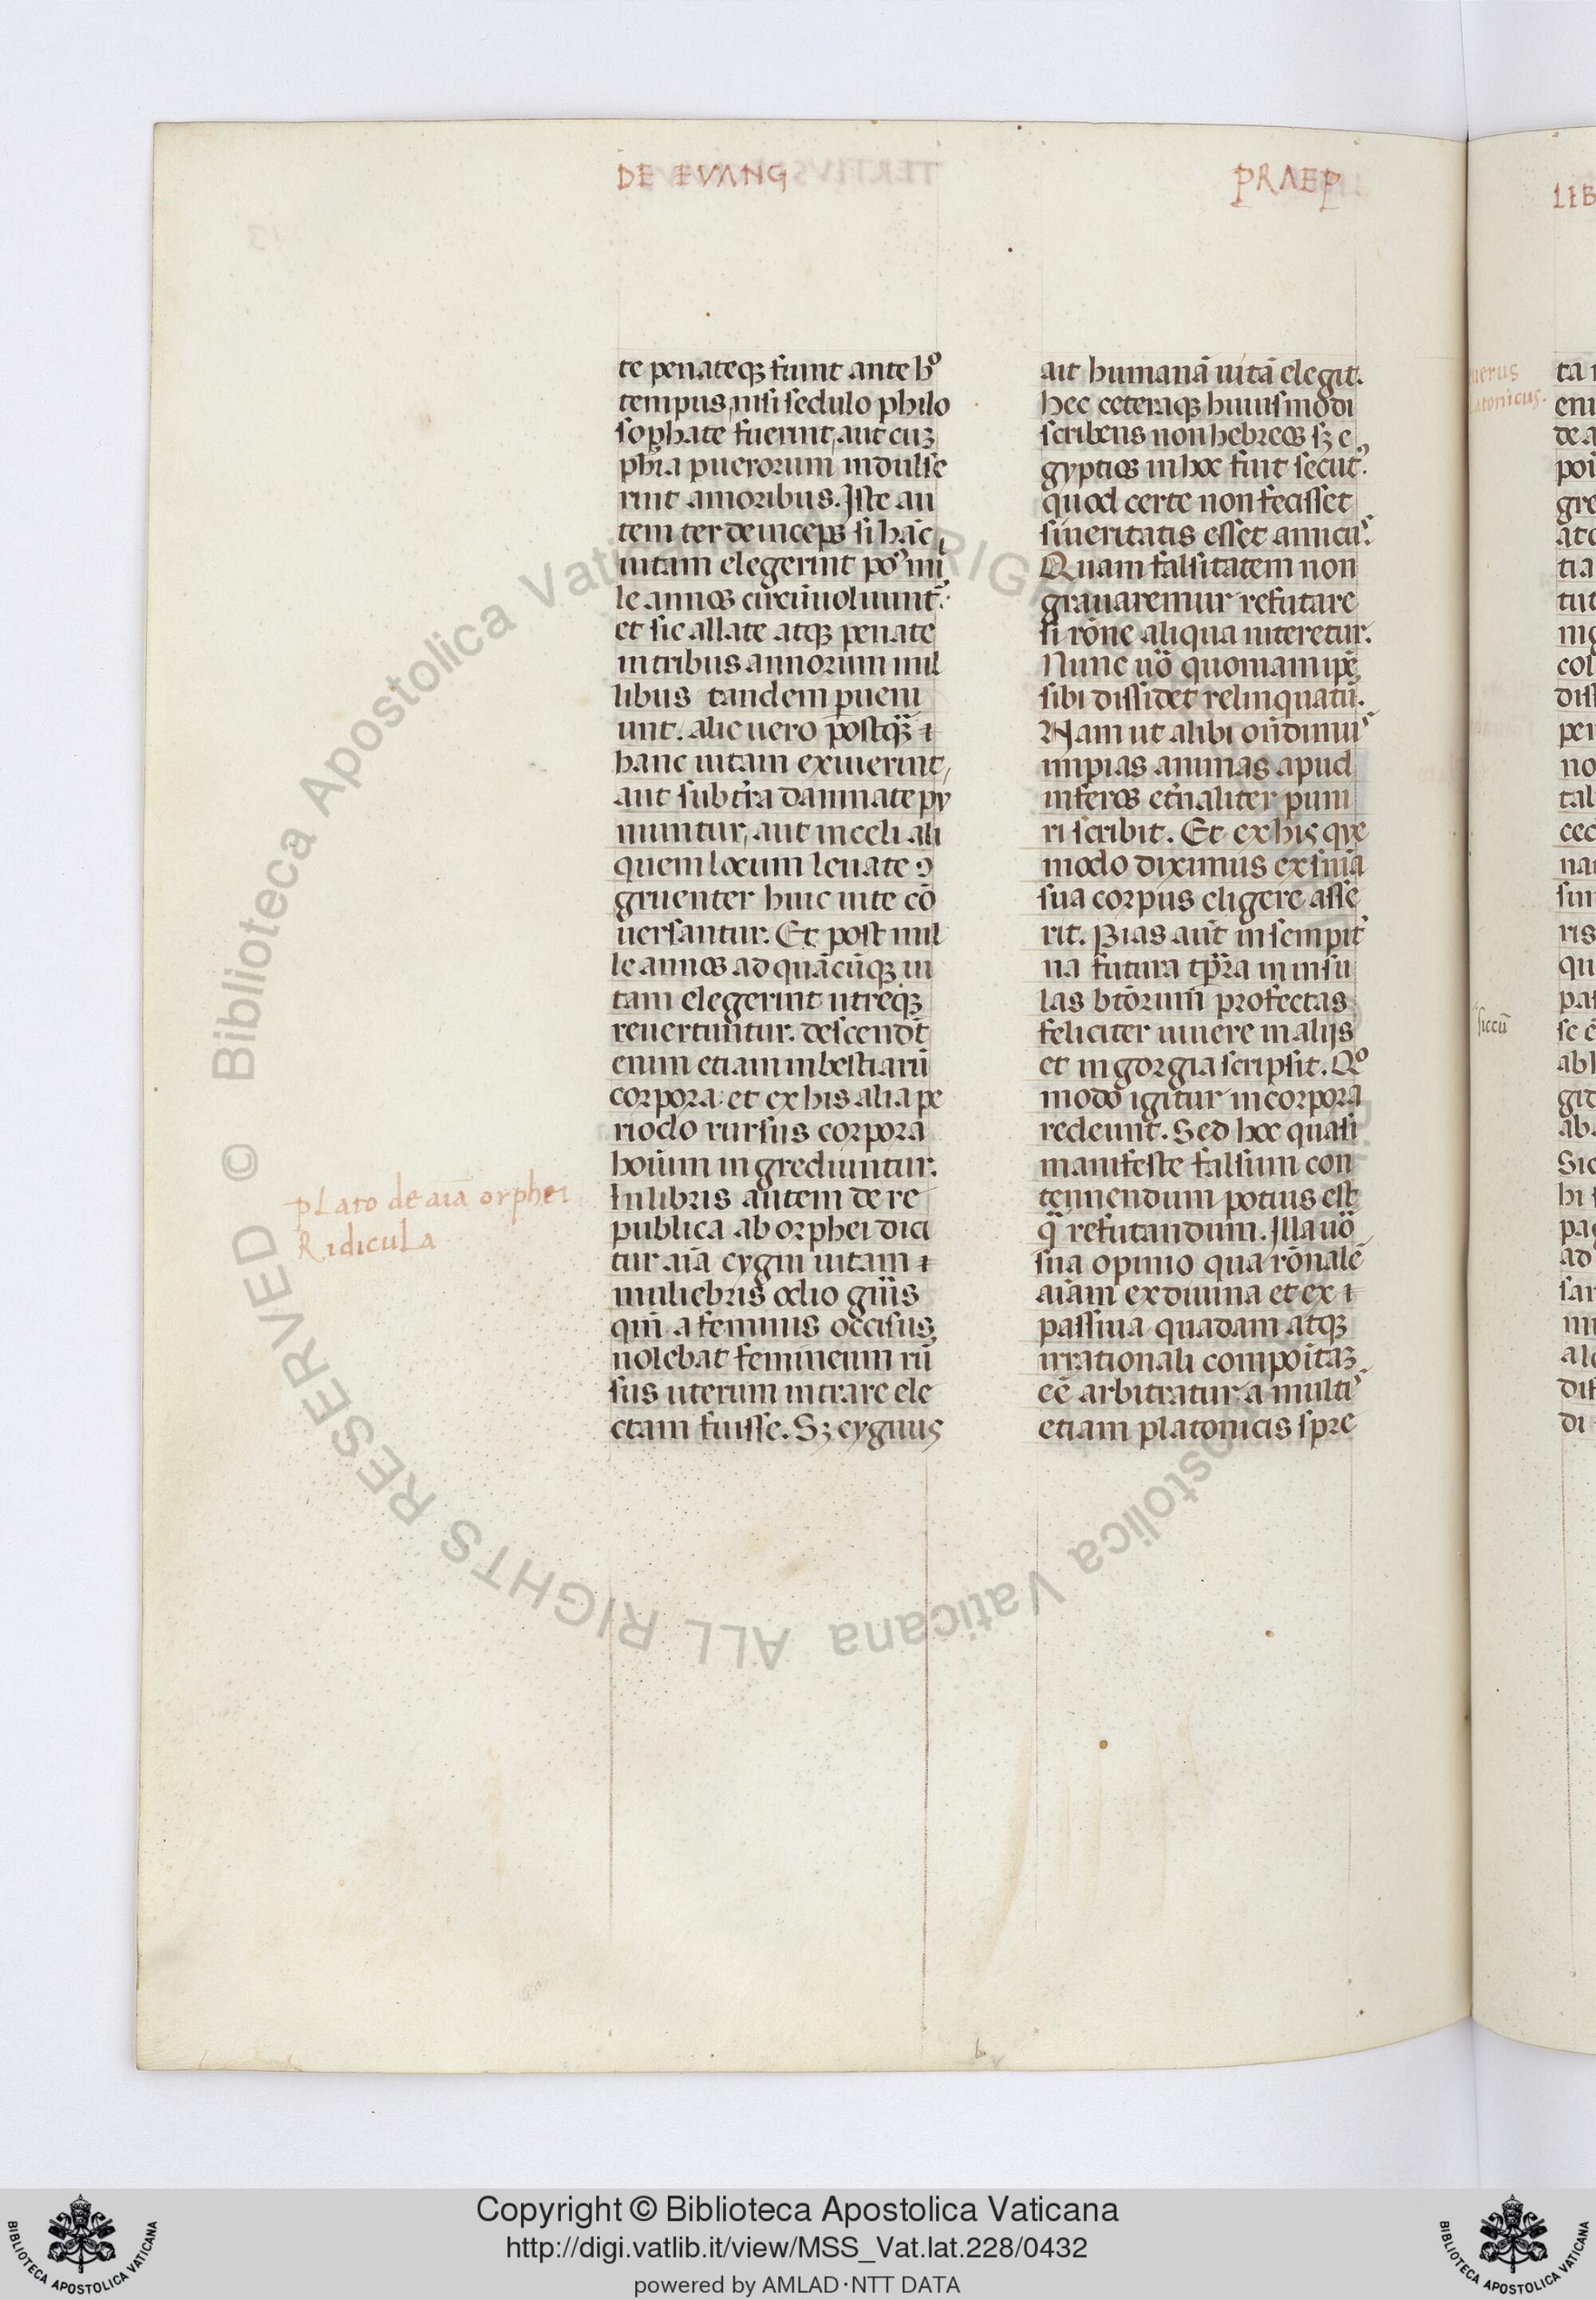 DE EVANG
PRAEP
te penateqꝫ fiunt ante hͦ
tempus, nisi sedulo philo
sophate fuerint, aut cuꝫ
phīa puerorum indulse
rint amoribus. Iste au
tem ter deinceps si hāc
uitam elegerint posͬ mi
le annos circūuoluunt᷑.
et sic allate atqꝫ penate
in tribus annorum mil
libus tandem pueni
unt. alie uero postqꝫ̄ ⁊
hanc uitam exiuerint,
aut sub tr̄a damnate py
niuntur, aut in celi ali
quem locum leuate ꝯ
gruenter huic uite cō
uersantur. Et post mil
le annos ad quācūqꝫ ui
tam elegerint utreqꝫ
reuertuntur. descendūt
enim etiam in bestiarū
corpora: et ex his alia pe
riodo rursus corpora
hoīum ingrediuntur.
In libris autem de re
publica ab orphei dici
tur aīa cygni uitam ⁊
muliebris odio gn̄is
qm̄ a feminis occisus
nolebat femineum rū
sus uterum intrare ele
ctam fuisse. Sꝫ cygnus
plato de aīa orphei
Ridicula
ait humanā uitā elegit.
hec ceteraqꝫ huiusmodi
scribens non hebreos sꝫ e
gyptios in hoc fuit secut᷒.
quod certe non fecisset
si ueritatis esset amicu᷒.
Quam falsitatem non
grauaremur refutare
si rōne aliqua niteretur.
Nunc uō quoniam ip̄e
sibi dissidet relinquatū.
Nam ut alibi on̄dimu᷒
impias animas apud
inferos et̄naliter puni
ri scribit. Et ex his que
modo diximus ex sn̄ia
sua corpus eligere asse
rit. Pias aut̄ in sempit᷑
na futura tp̄ra in insu
las btōrum profectas
feliciter uiuere in alijs
et in gorgia scripsit. Qͦ
modo igitur in corpora
redeunt. Sed hoc quasi
manifeste falsum con
temnendum potius est
qꝫ̄ refutandum. Illa uō
sua opinio qua rōnalē
aīam ex diuina et ex ⁊
passiua quadam atqꝫ
irrationali compoītaꝫ
eē arbitratur a multi᷒
etiam platonicis spre
Copyright © Biblioteca Apostolica Vaticana
http://digi.vatlib.it/view/MSS_Vat.lat.228/0432
powered by AMLAD·NTT DATA